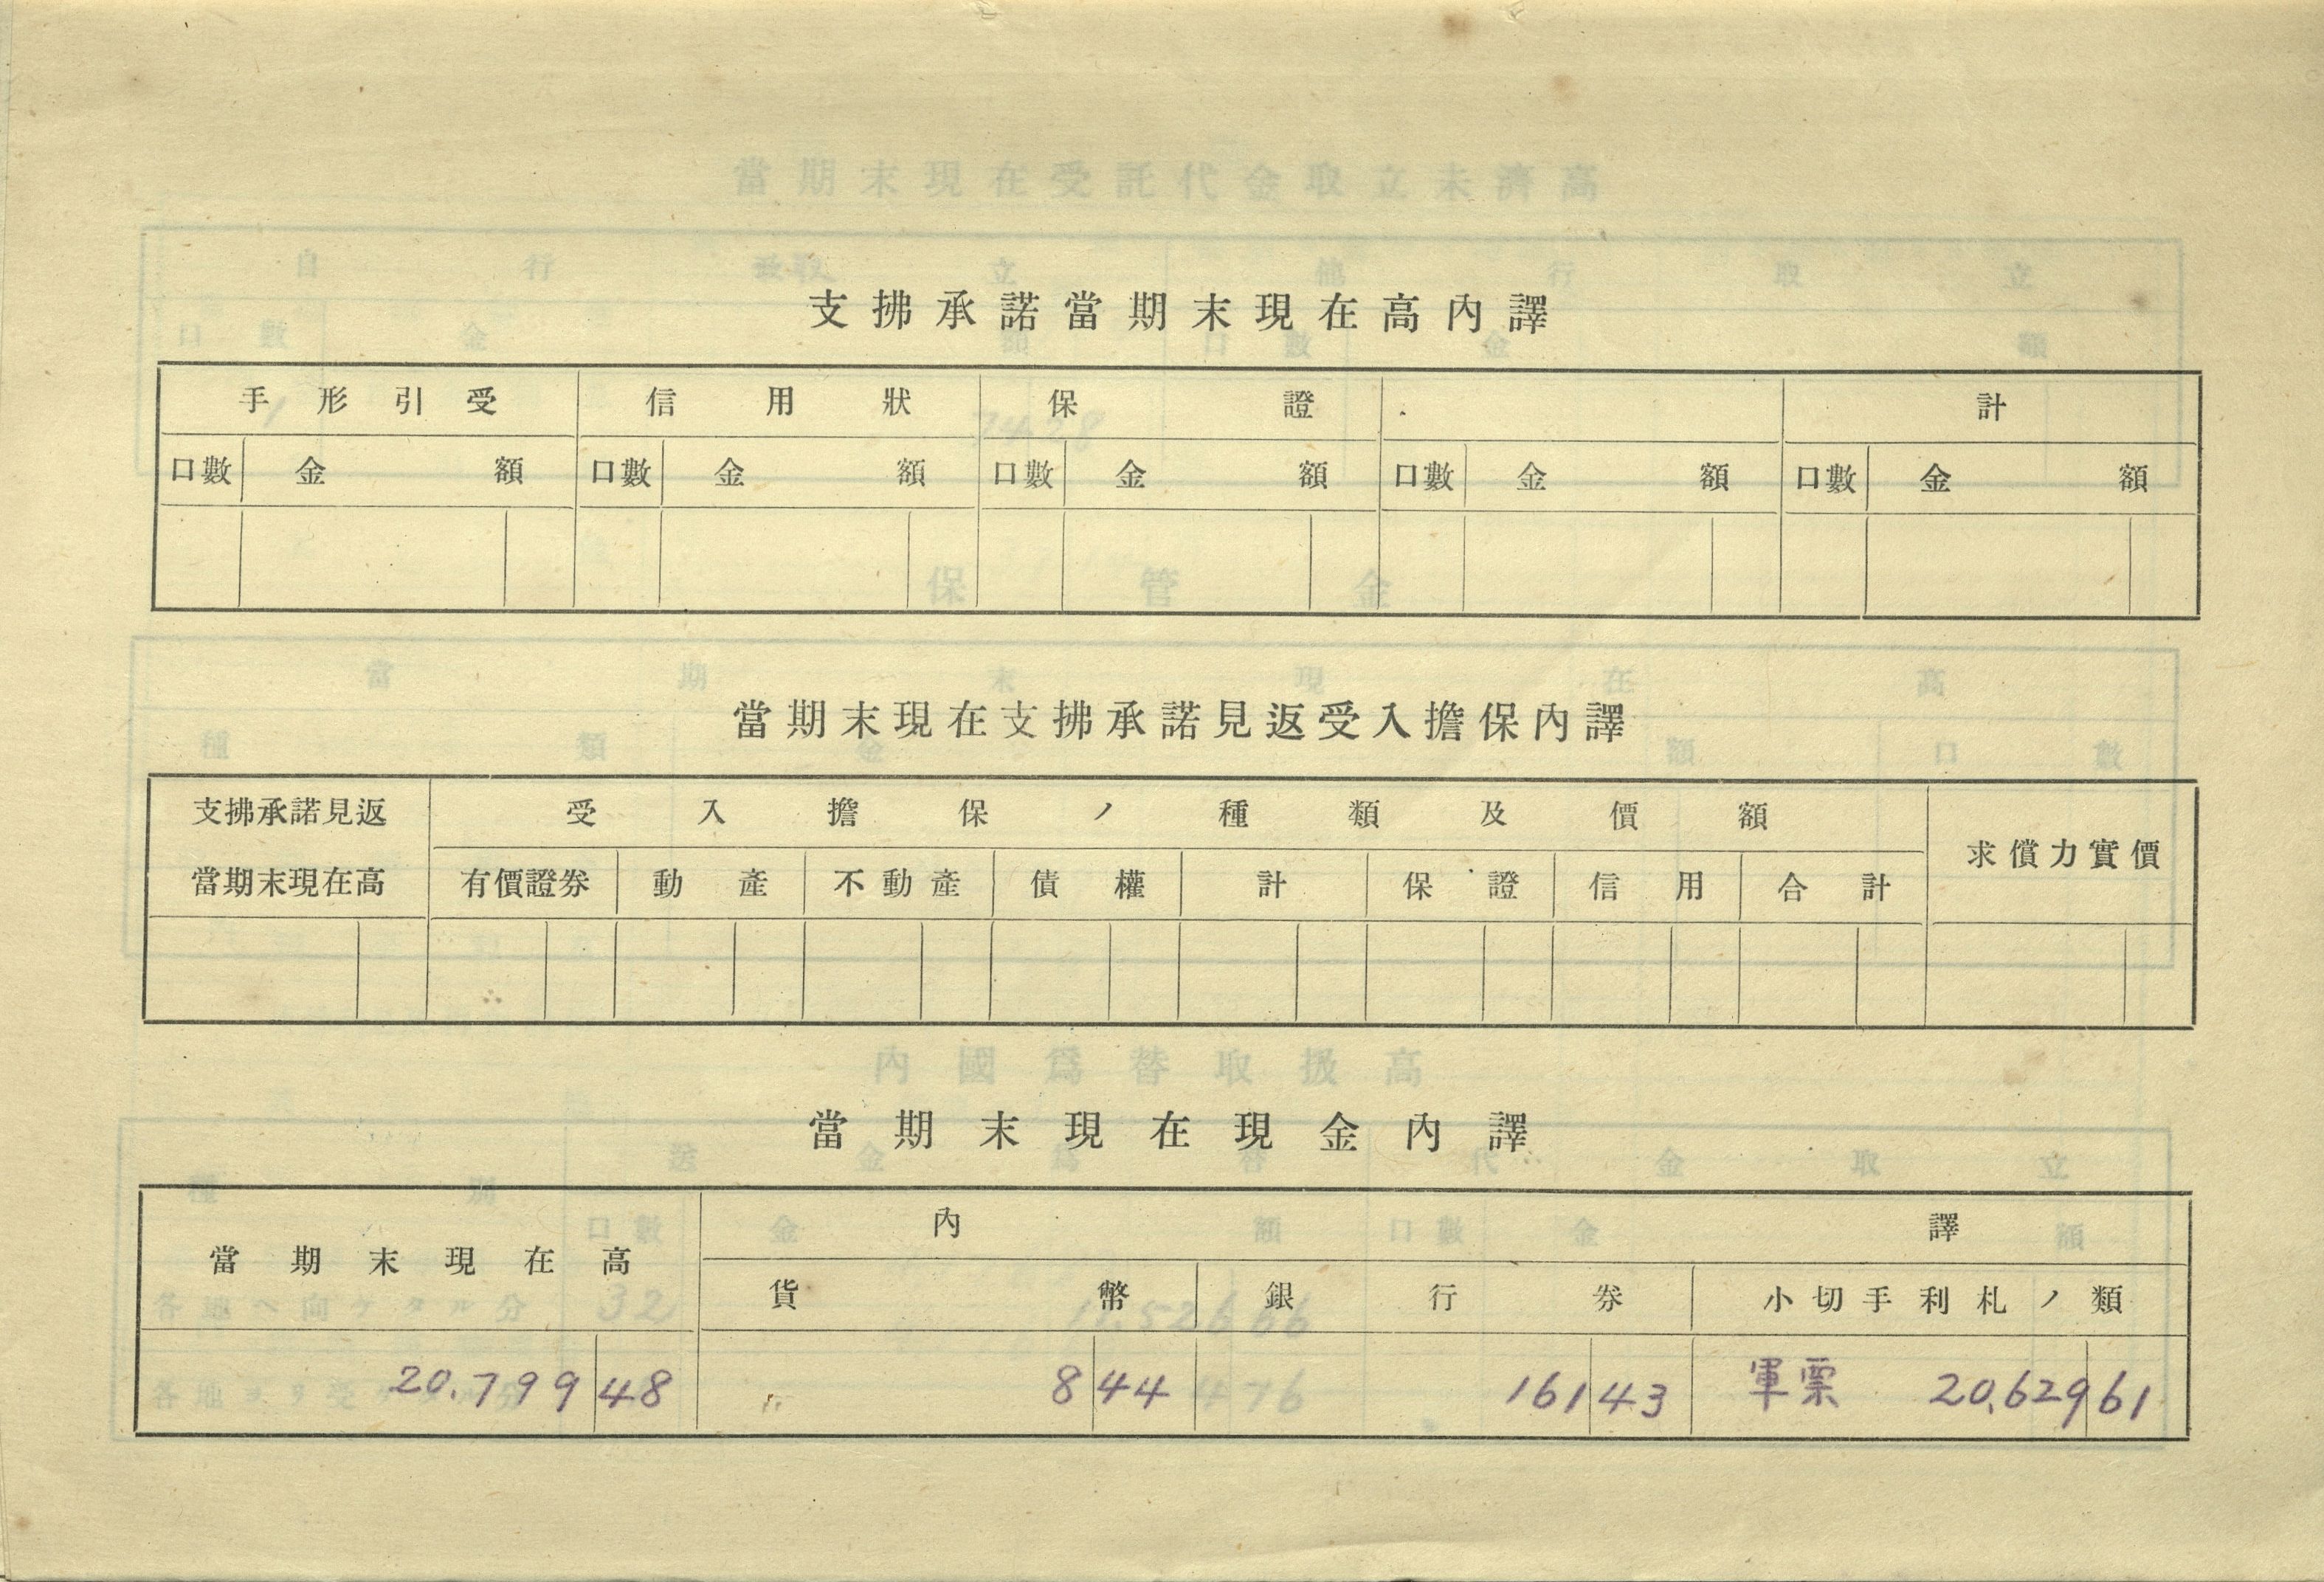 支拂承諾當期末現在高內譯
手形引受 信用狀 保證 計
口數 金額 口數 金額 口數 金額 口數 金額 口數 金額
當期末現在支拂承諾見返受入擔保內譯
支拂承諾見返 受入擔保ノ種類及價額 求償力實價
當期末現在高 有價證券 動產 不動產 債權 計 保證 信用 合計
當期末現在現金內譯
當期末現在高 內譯
貨幣 銀行券 小切手利札ノ類
20.799 48 8 44 161 43 軍票 20.629 61